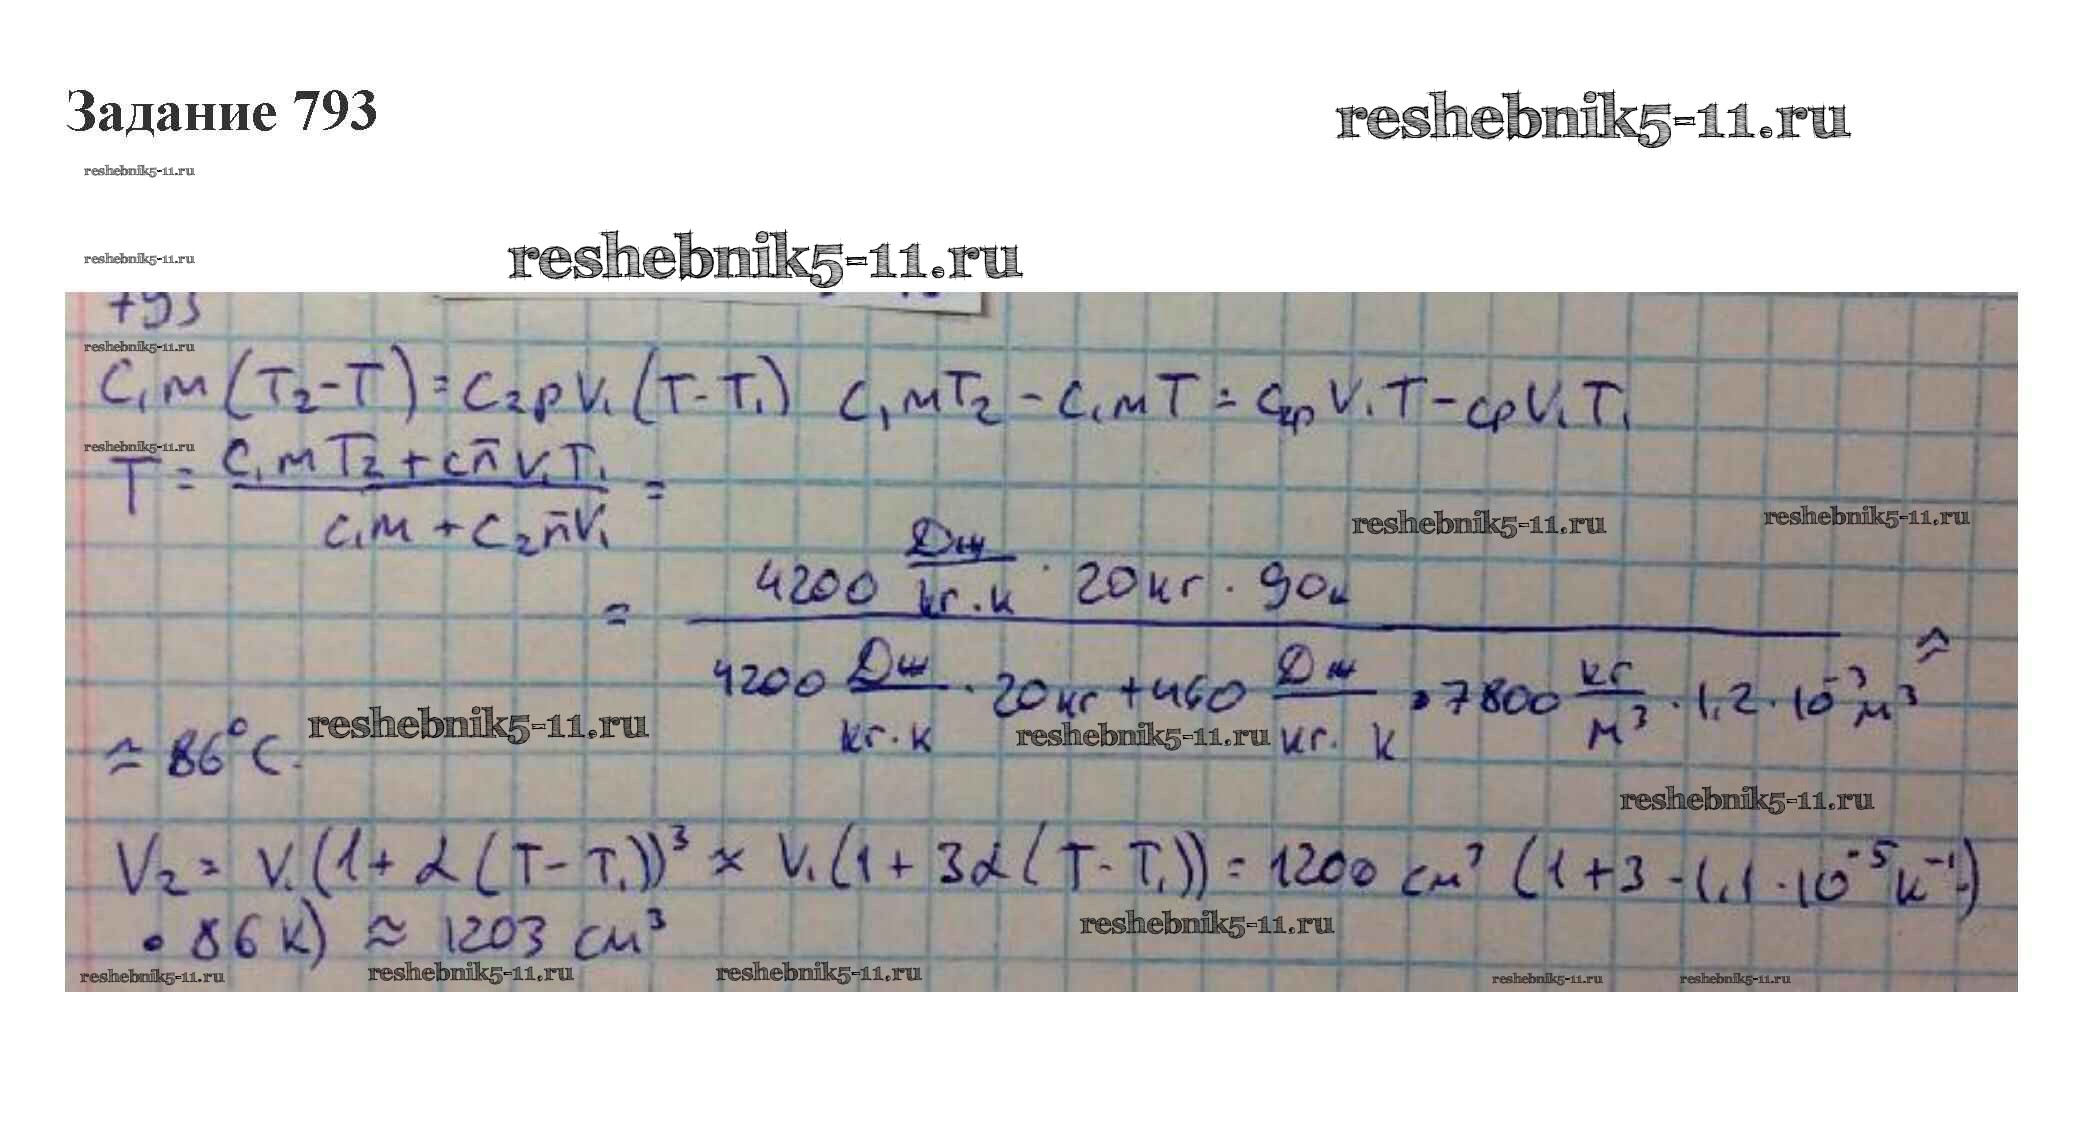 Задание 793
reshebnik5-11.ru
reshebnik5-11.ru
reshebnik5-11.ru
reshebnik5-11.ru
793
reshebnik5-11.ru
C₁м(T₂-T)=C₂pV₁(T-T₁) C₁мT₂-C₁мT=C₂pV₁T-CpV₁T₁
reshebnik5-11.ru
T = (C₁мT₂+cп̄V₁T₁)/(C₁м+C₂п̄V₁) =
reshebnik5-11.ru
reshebnik5-11.ru
= (4200 Дж/кг·к · 20кг · 90к)/(4200 Дж/кг·к · 20кг + 460 Дж/кг·к · 7800 кг/м³ · 1,2·10⁻³м³) ≈
≈ 86°C.
reshebnik5-11.ru
reshebnik5-11.ru
reshebnik5-11.ru
V₂ = V₁(1+α(T-T₁))³ ≈ V₁(1+3α(T-T₁)) = 1200 см³ (1+3-1,1·10⁻⁵к⁻¹·)
· 86к) ≈ 1203 см³
reshebnik5-11.ru
reshebnik5-11.ru
reshebnik5-11.ru
reshebnik5-11.ru
reshebnik5-11.ru
reshebnik5-11.ru